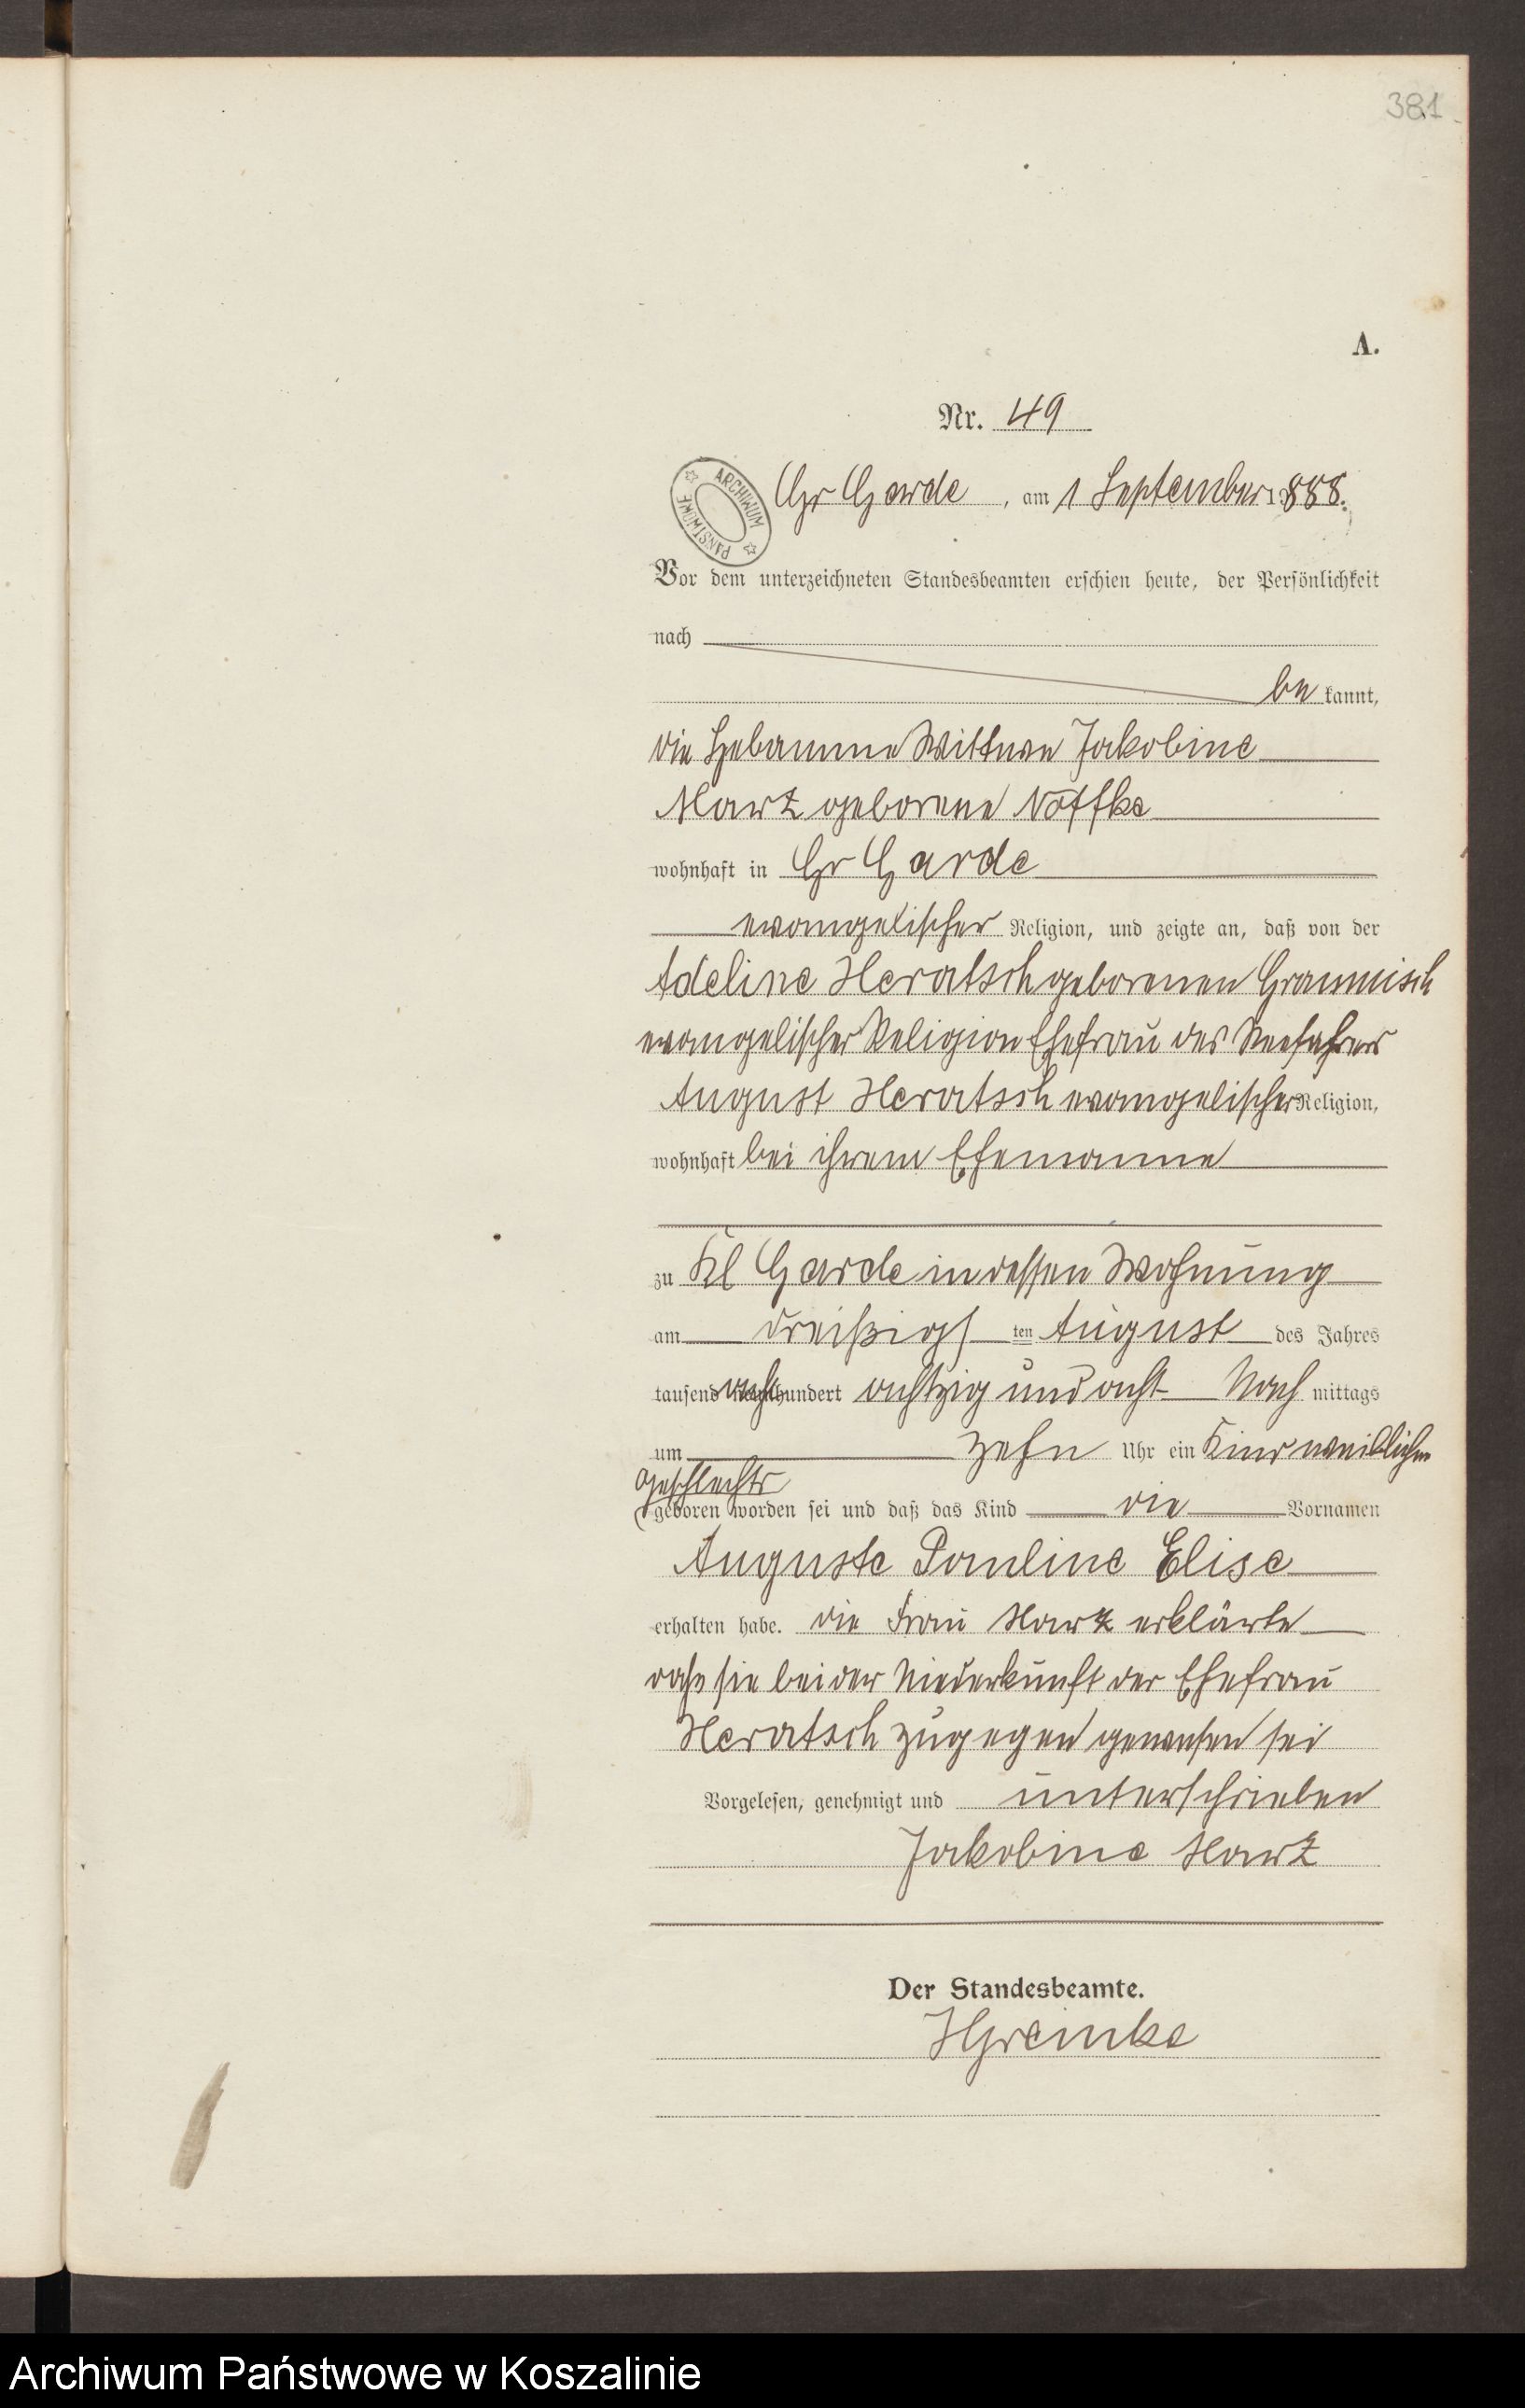 381
A.
Nr. 49
ARCHIWUM PAŃSTWOWE
Gr Garde, am 1 September 1888.
Vor dem unterzeichneten Standesbeamten erschien heute, der Persönlichkeit
nach
be kannt,
die Hebamme Wittwe Jakobine
Harz geborene Nöffke
wohnhaft in Gr Garde
evangelischer Religion, und zeigte an, daß von der
Adeline Heratsch geborenen
evangelischer Religion Ehefrau des Seefahrers
August Heratsch evangelischer Religion,
wohnhaft bei ihrem Ehemanne
zu Kl Garde in dessen Wohnung
am dreißigs ten August des Jahres
tausend acht hundert achtzig und acht Nach mittags
um zehn Uhr ein Kind weiblichen
Geschlechts
geboren worden sei und daß das Kind die Vornamen
Auguste Pauline Elise
erhalten habe. die Frau Harz erklärte
daß sie bei der Niederkunft der Ehefrau
Heratsch zugegen gewesen sei
Vorgelesen, genehmigt und unterschrieben
Jakobine Harz
Der Standesbeamte.
HGreinke
Archiwum Państwowe w Koszalinie